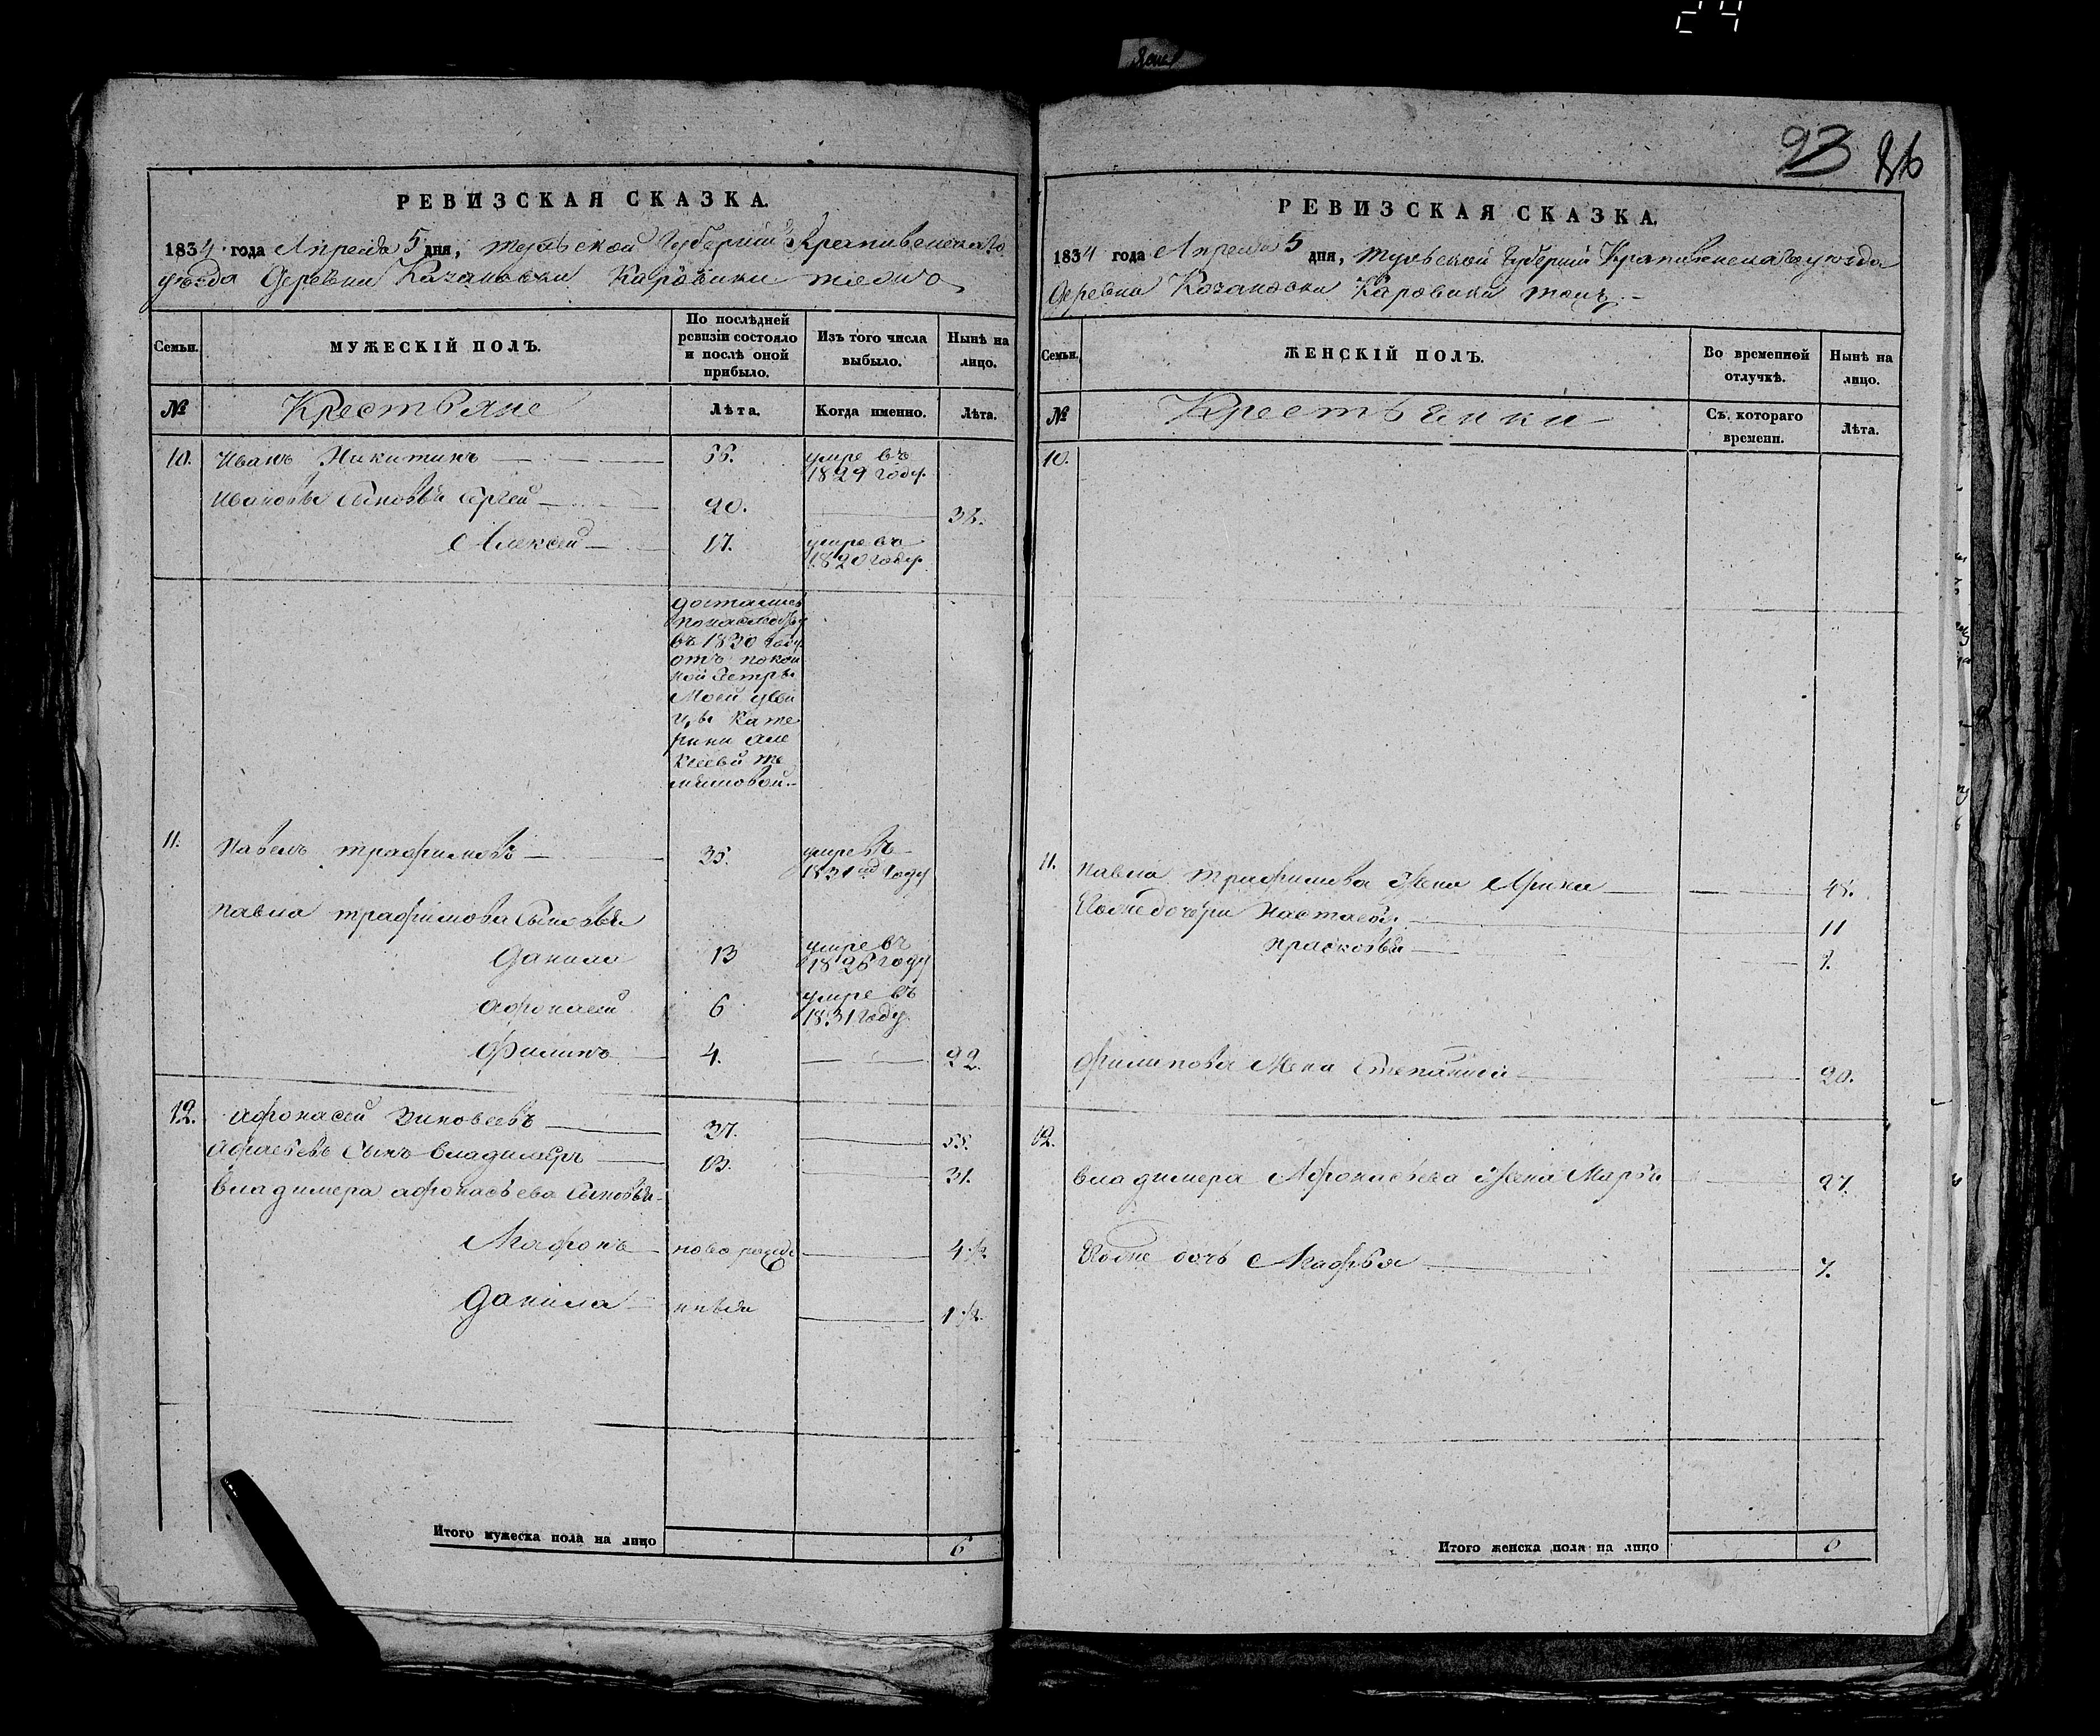 24
23 26
РЕВИЗСКАЯ СКАЗКА.
1834 года Апреля 5 дня, тульской Губернии Крапивенскаго
уѣзда деревни Казановки Каровики тожъ
Семьи.
МУЖЕСКІЙ ПОЛЪ.
По послѣдней ревизіи состояло и послѣ оной прибыло.
Изъ того числа выбыло.
Нынѣ на лицо.
№ Крестьяне Лѣта. Когда именно. Лѣта.
10. Иванъ Никитинъ 56. умре въ 1829 году
Ивановы Сыновья Сергей 20. 36.
Алексей 17. умре въ 1820 году
достались
по наследству
въ 1830 году
отъ покой
ной Сестры
Моей
Кате
рины Але
ксеевы
11. Павелъ трафимовъ 35. умре въ 1831 году
Павла трафимова Сыновья
данила 13 умре въ 1826 году
афонасей 6 умре въ 1831 году
Филипъ 4. 22.
12. афонасей Зиновеевъ 37. 55.
Сынъ владимеръ 13. 31.
владимера афонасьева Сыновья
Мафонъ ново рожде 4 ½
данила нныя 1 ½
Итого мужеска пола на лицо 6
РЕВИЗСКАЯ СКАЗКА.
1834 года Апреля 5 дня, тульской Губернии Крапивенскаго уѣзда
деревни Козановки Каровики тожъ
Семьи.
ЖЕНСКІЙ ПОЛЪ.
Во временной отлучкѣ.
Нынѣ на лицо.
№ Крестьянки Съ котораго времени. Лѣта.
10.
11. Павла трафимова Жена Арина 45.
Еѣ же дочери Настасья 11
прасковья
Филипова Жена Степанида 20.
12.
владимера Афонасьева Жена Марья 27.
Его же дочь Мафья 7.
Итого женска пола на лицо 6